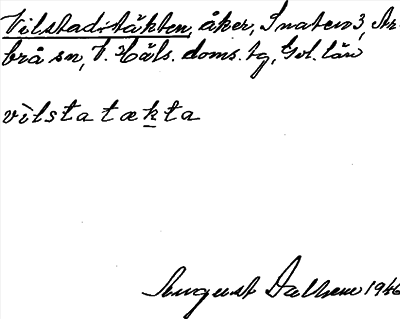 Vilstadstäkten, åker, Snaten 3, Ar-
brå sn, V. Häls. doms. tg, Gvl. län
vilsta takta
August Dalhem 1946